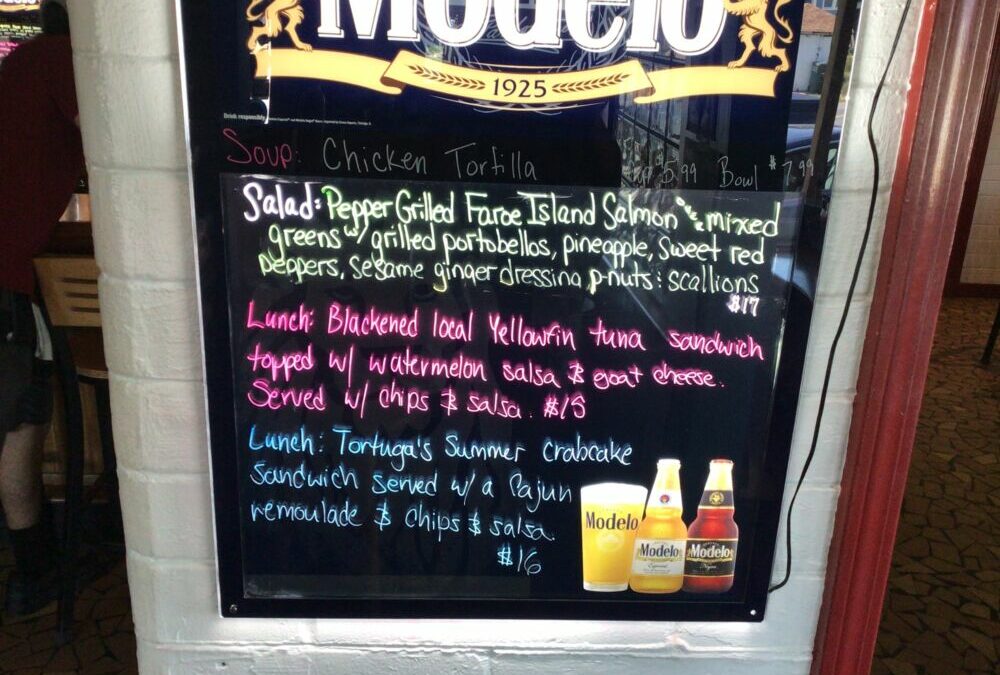 Modelo
1925
Drink responsibly.
Soup: Chicken Tortilla Cup $5.99 Bowl $7.99
Salad: Pepper Grilled Faroe Island Salmon mixed
greens w/ grilled portobellos, pineapple, sweet red
peppers, sesame ginger dressing p-nuts : scallions
$17
Lunch: Blackened local Yellowfin tuna sandwich
topped w/ watermelon salsa & goat cheese.
Served w/ chips & salsa. $18
Lunch: Tortuga's Summer crabcake
sandwich served w/ a Cajun
remoulade & chips & salsa.
$16
Modelo
Modelo
Especial
Modelo
Negra